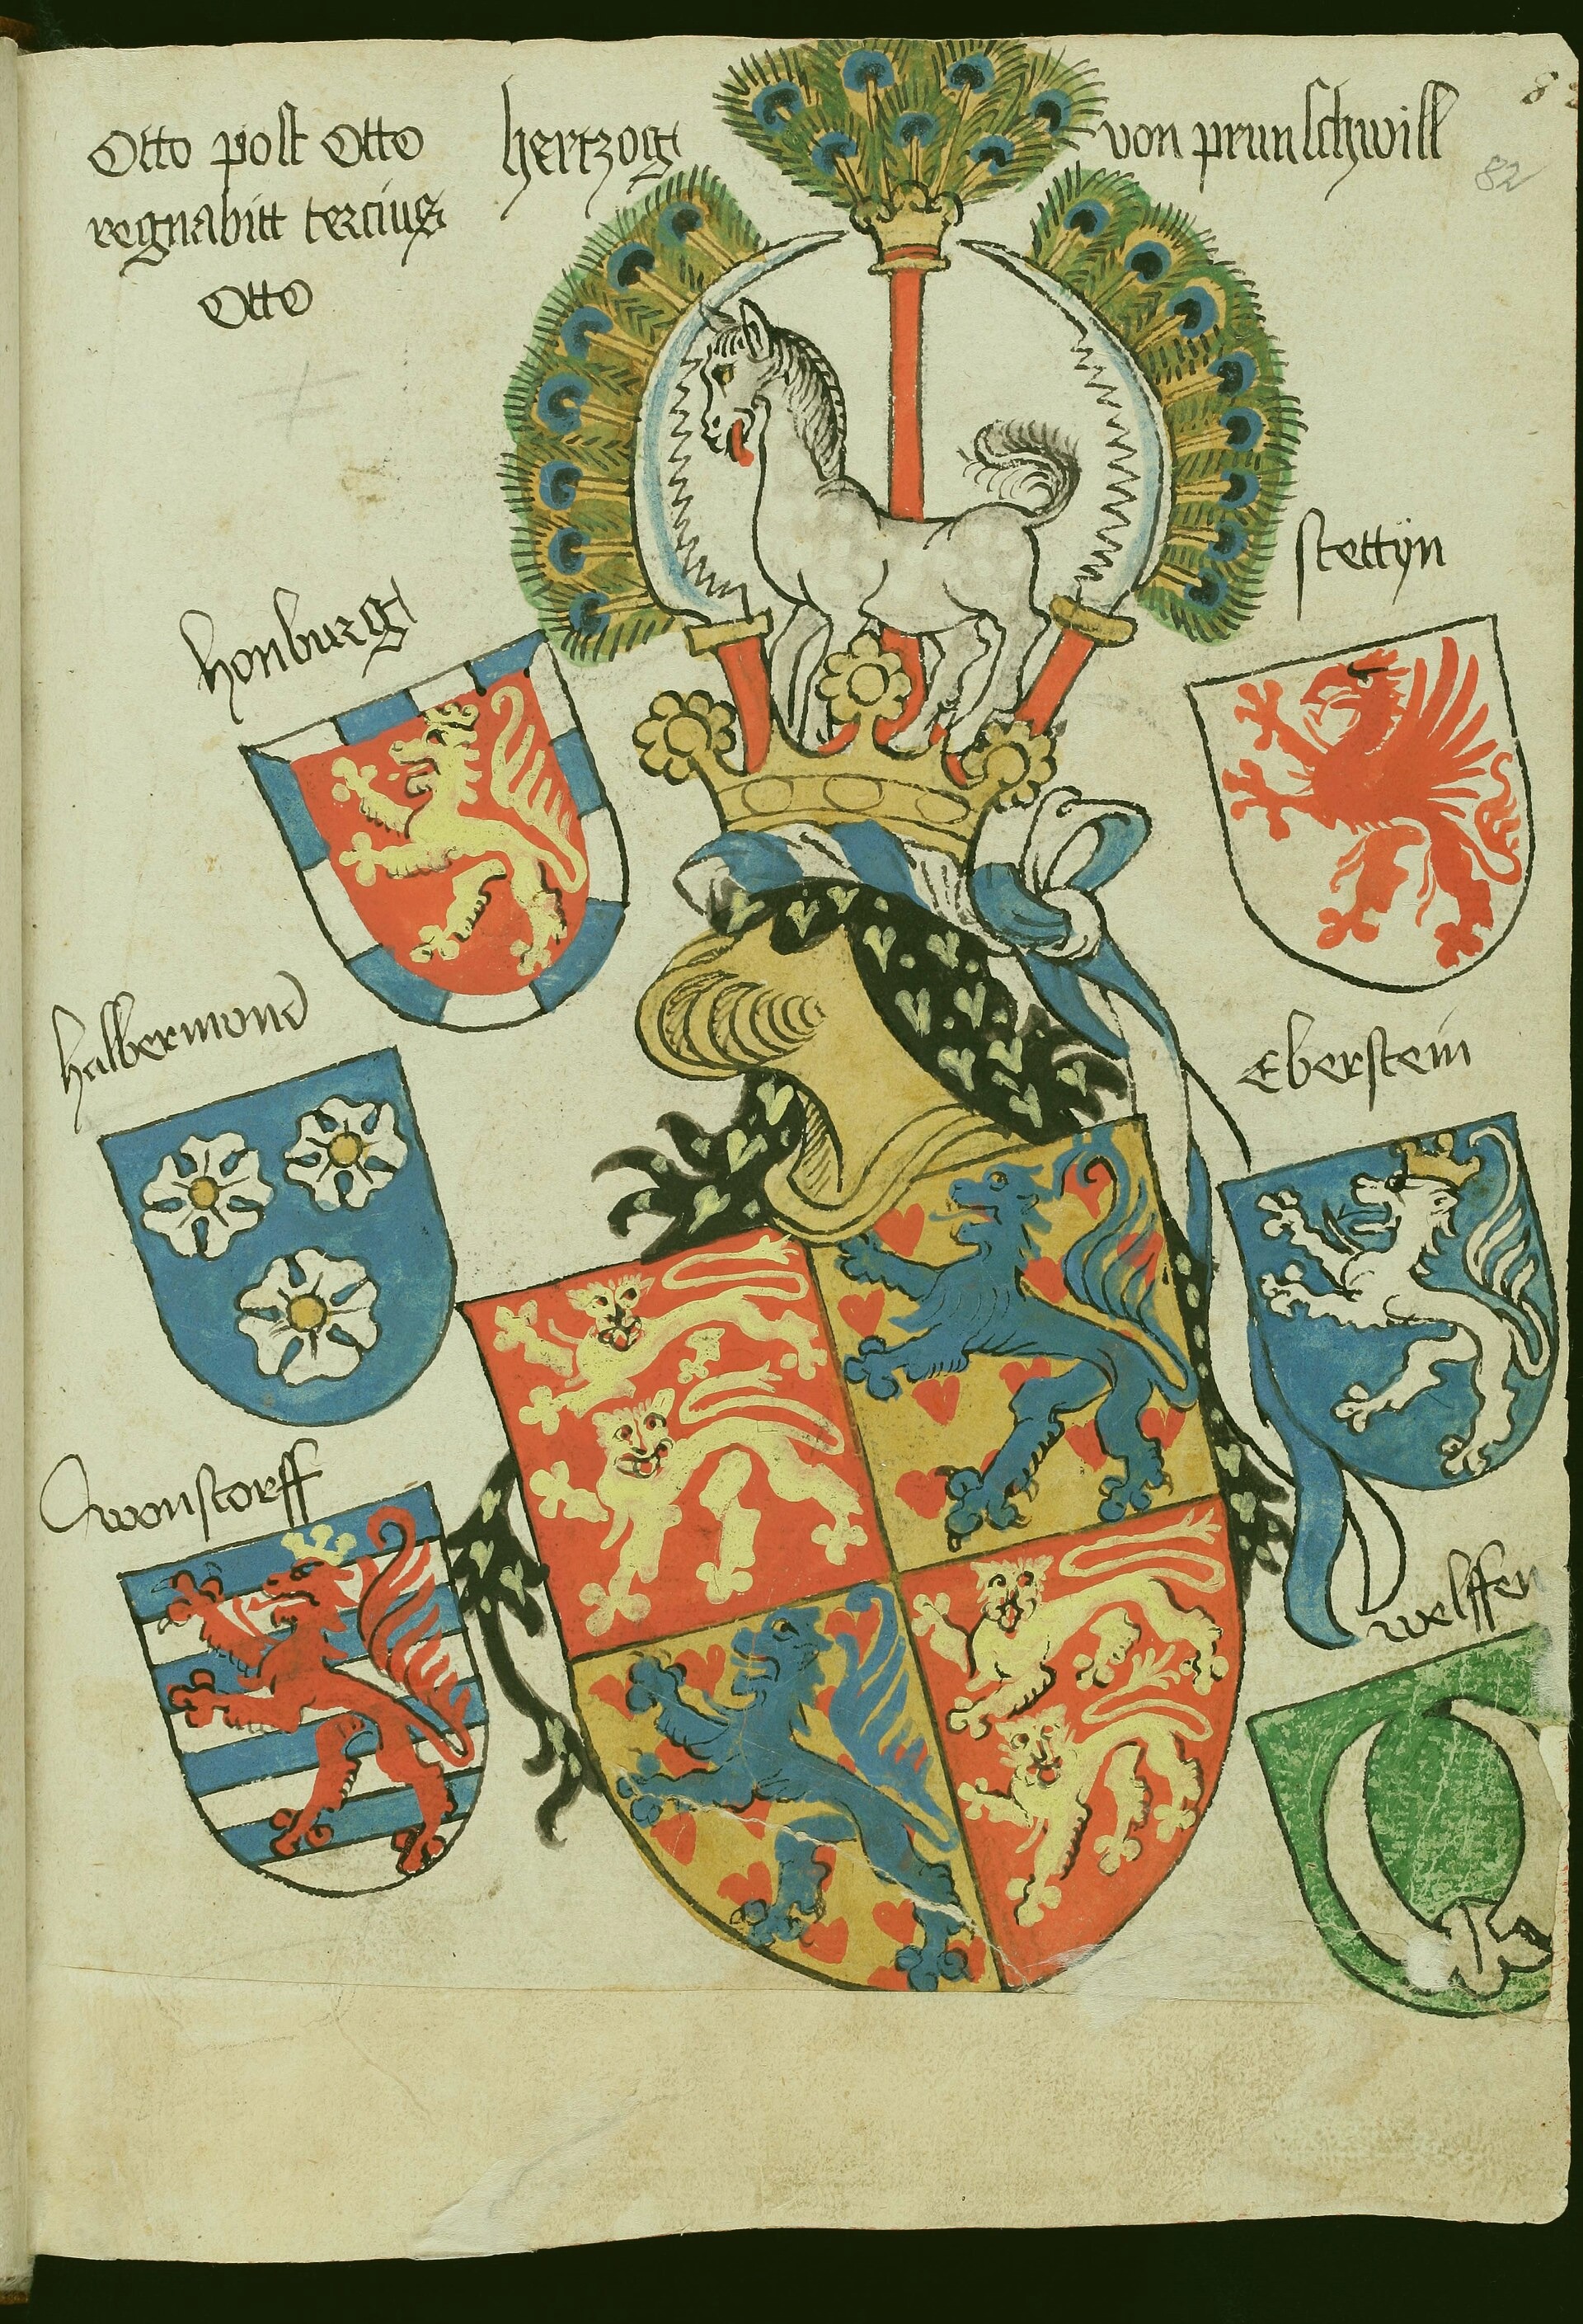 Otto post Otto
regnabitt tercius
Otto
hertzog von prunschwill
82
honburg
stettyn
halbermond
Eberstein
welffen